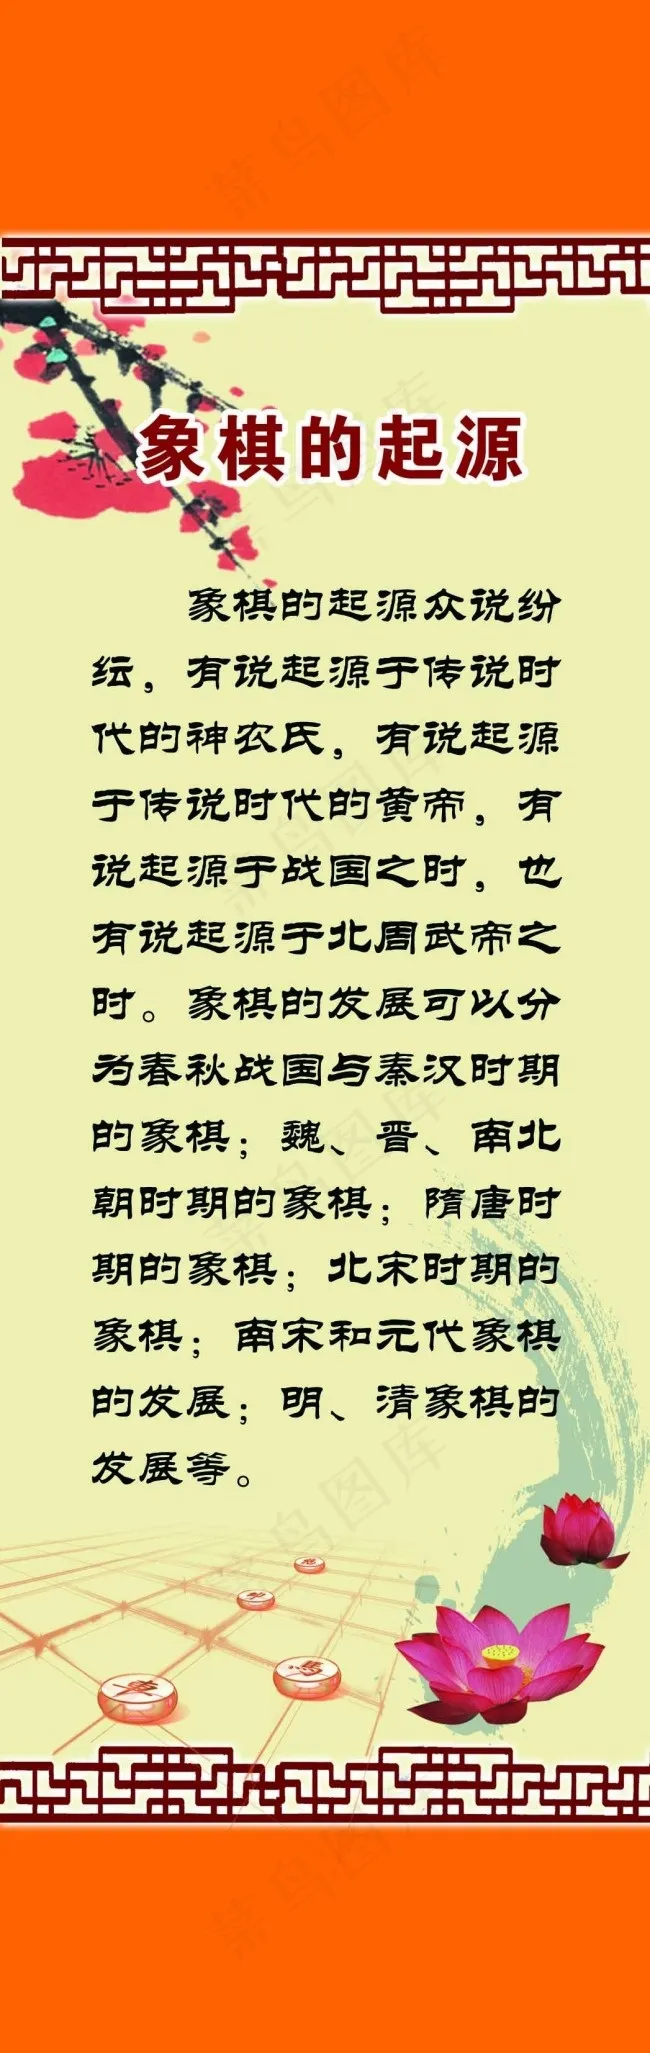 菜鸟图库
象棋的起源
象棋的起源众说纷
纭，有说起源于传说时
代的神农氏，有说起源
于传说时代的黄帝，有
说起源于战国之时，也
有说起源于北周武帝之
时。象棋的发展可以分
为春秋战国与秦汉时期
的象棋；魏、晋、南北
朝时期的象棋；隋唐时
期的象棋；北宋时期的
象棋；南宋和元代象棋
的发展；明、清象棋的
发展等。